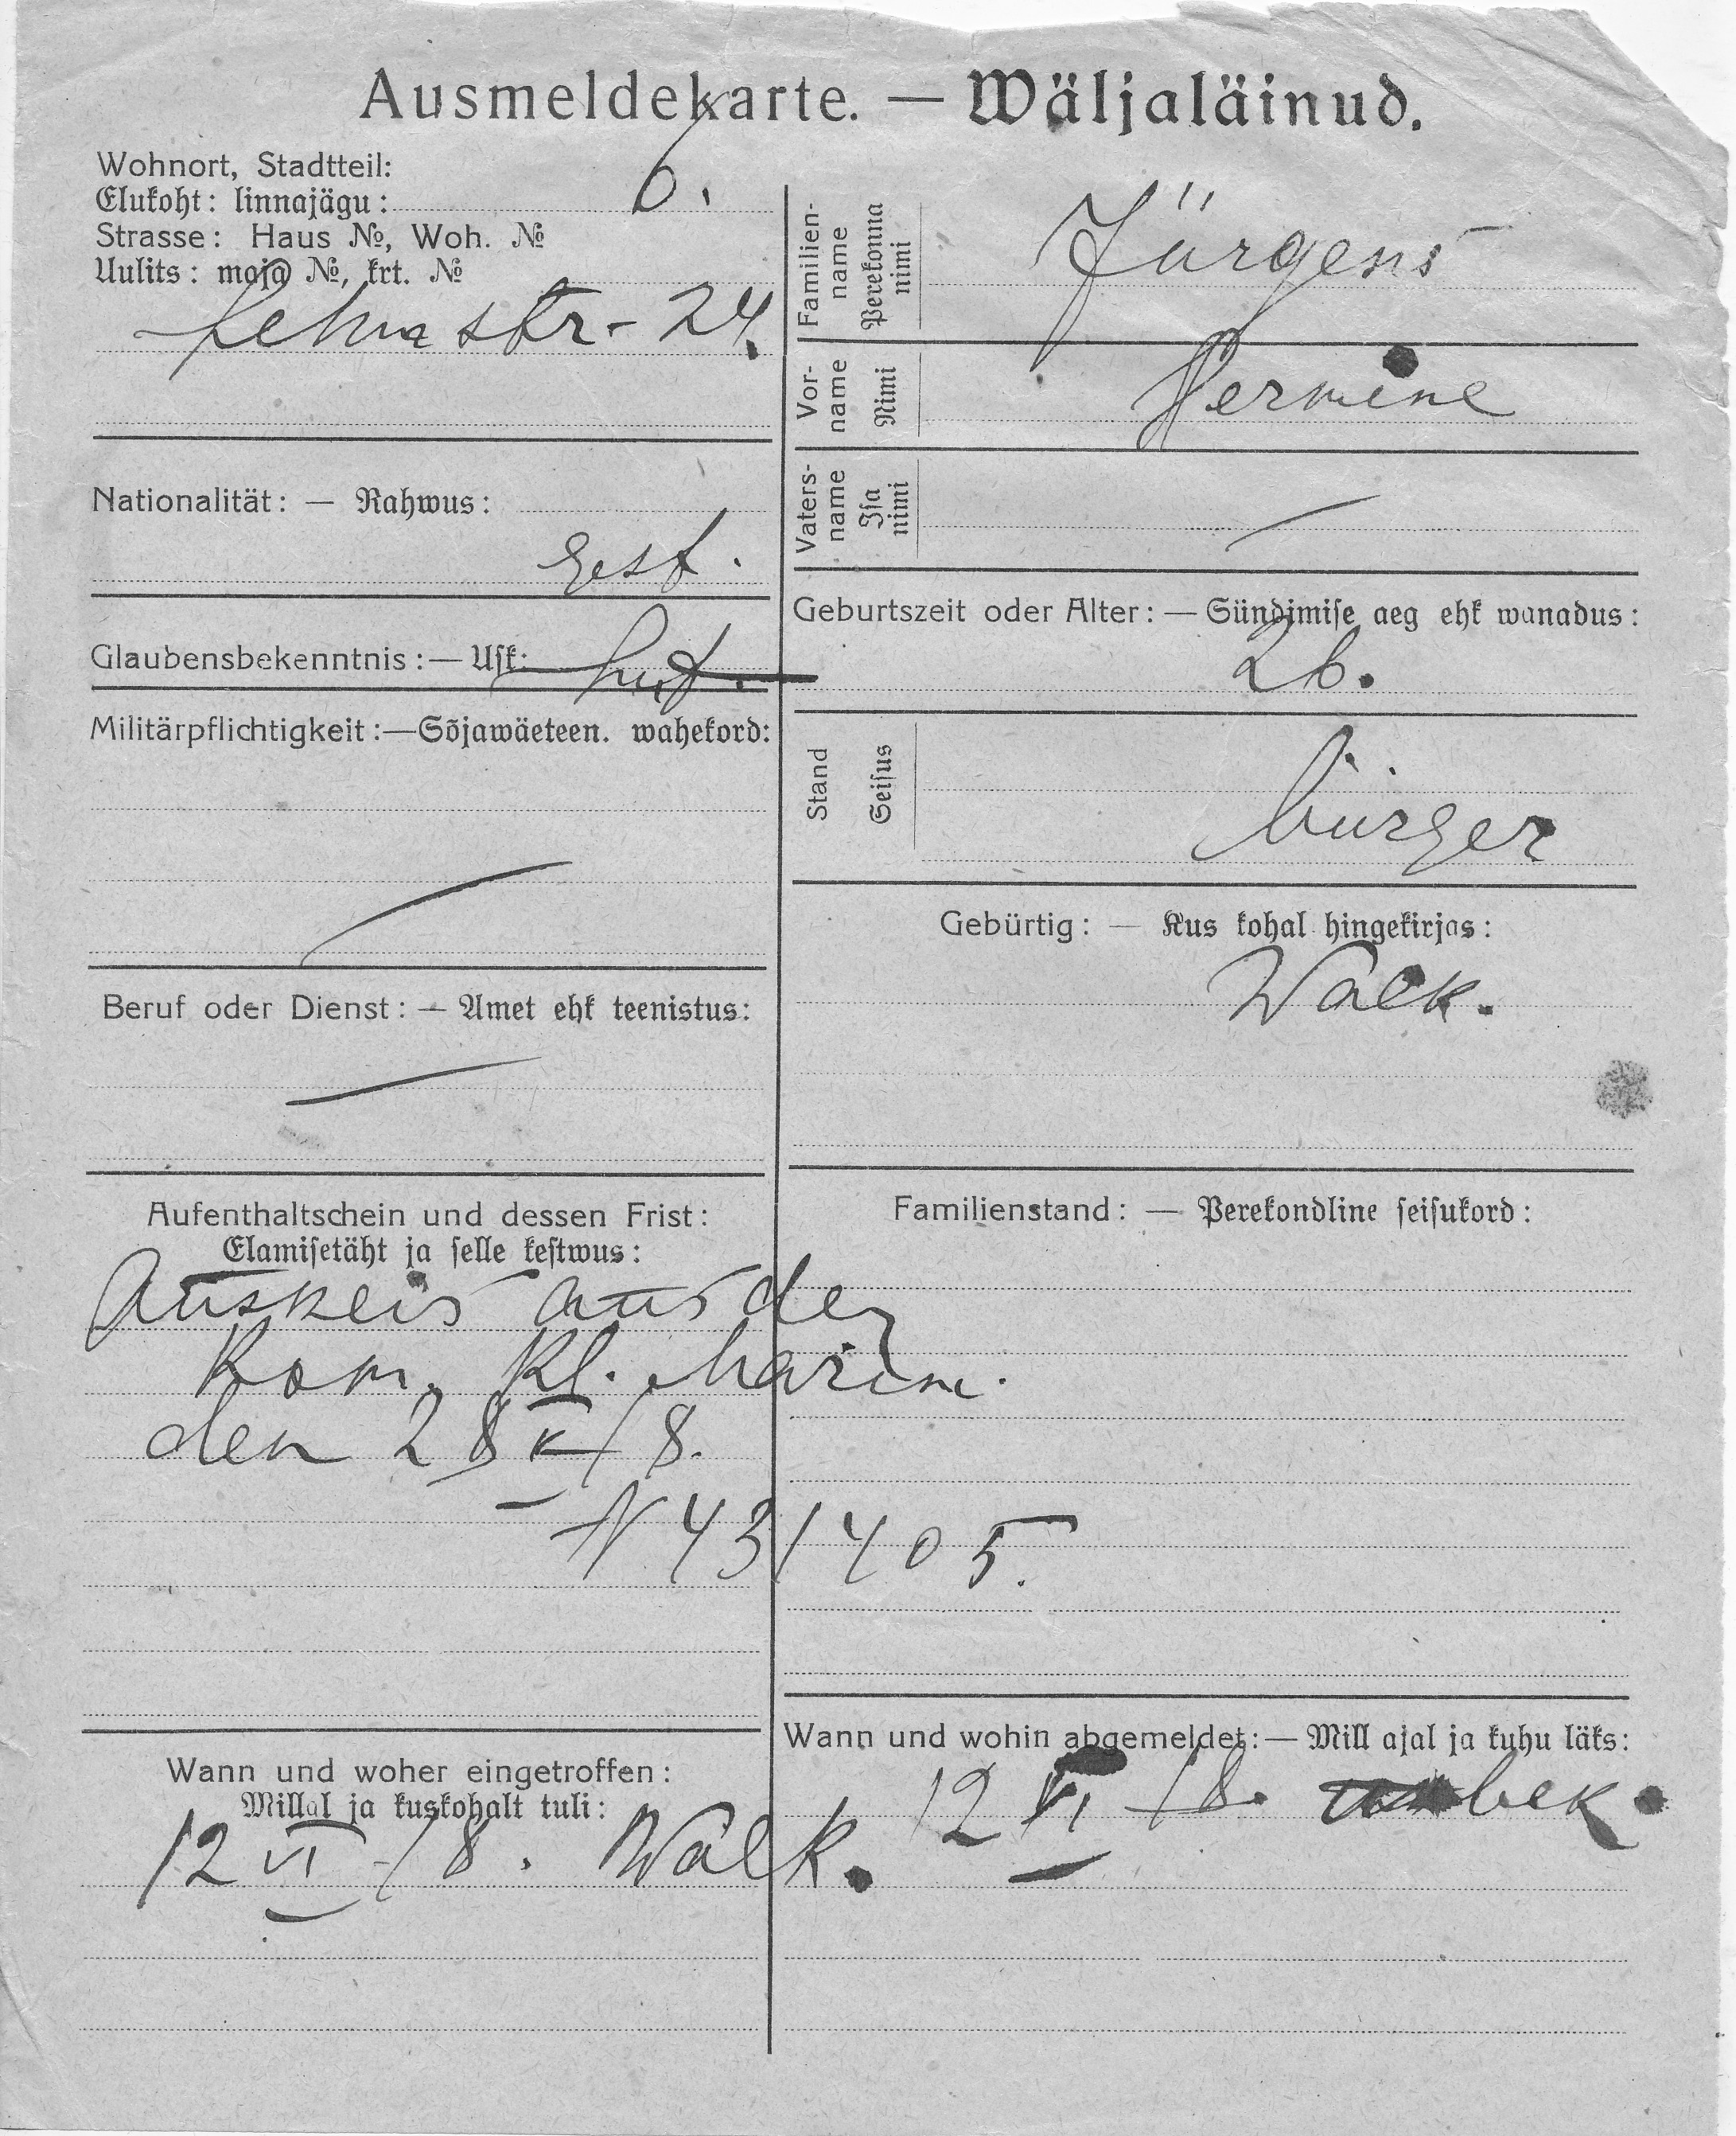 Ausmeldekarte. — Wäljaläinud.
Wohnort, Stadtteil:
Elukoht: linnajägu: 6.
Strasse: Haus №, Woh. №
Uulits: maja №, krt. №
str - 24.
Nationalität: — Rahwus:
Gest.
Glaubensbekenntnis: — Usk: Lut.
Militärpflichtigkeit: — Sõjawäeteen. wahekord:
Beruf oder Dienst: — Amet ehk teenistus:
Aufenthaltschein und dessen Frist:
Elamisetäht ja selle kestwus:
Auskeis aus der
Kom. Kl. Marim.
den 28 V 18.
N 431405.
Wann und woher eingetroffen:
Millal ja kuskohalt tuli:
12 VI - 18. Walk.
Familienname Perekonna nimi Jürgens
Vorname Nimi Hermine
Vatersname Isa nimi —
Geburtszeit oder Alter: — Sündimise aeg ehk wanadus:
26.
Stand Seisus bürger
Gebürtig: — Kus kohal hingekirjas:
Walk.
Familienstand: — Perekondline seisukord:
Wann und wohin abgemeldet: — Mill ajal ja kuhu läks:
12 VI - 18.